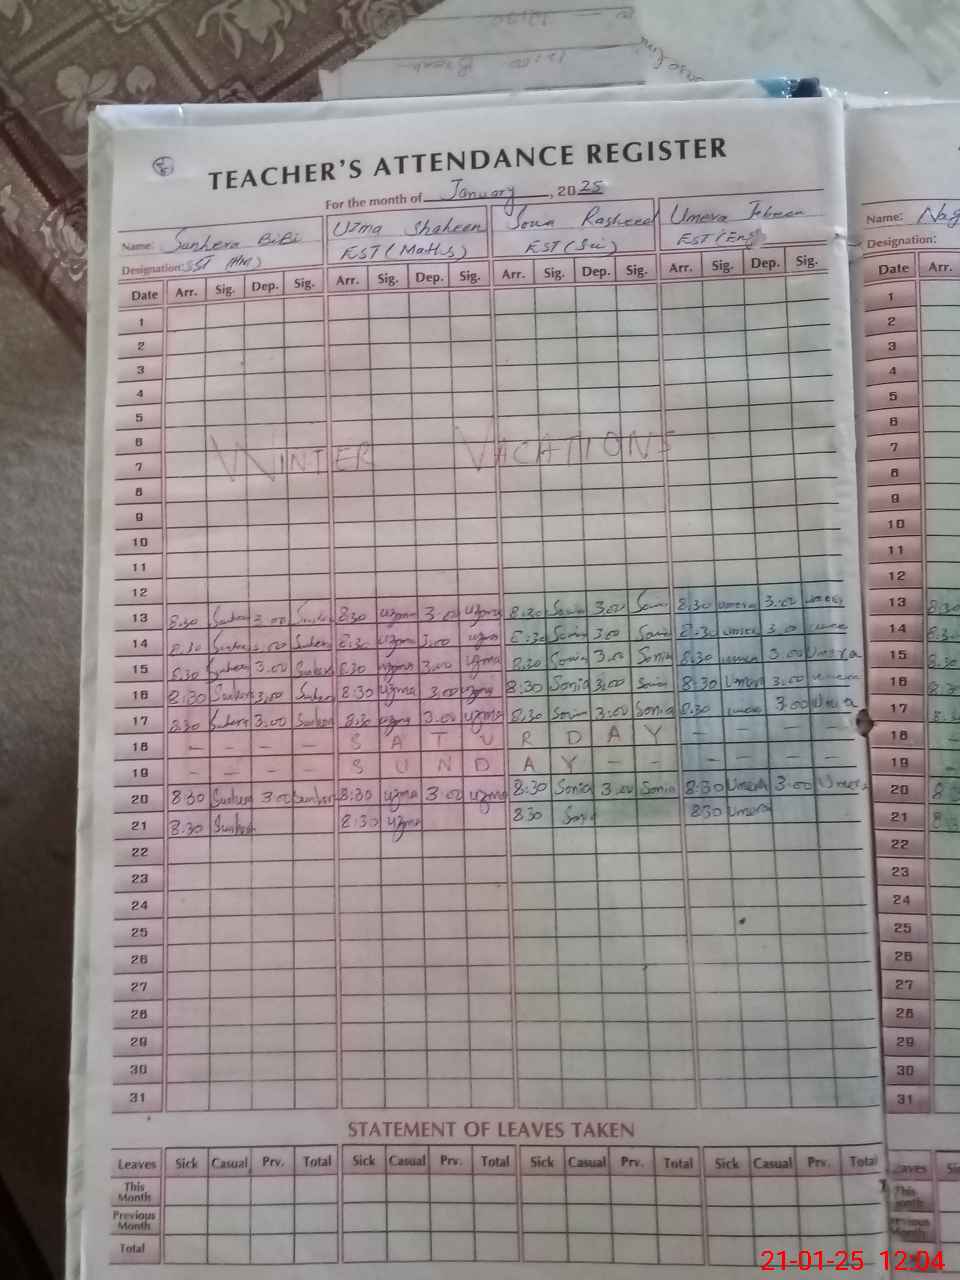 TEACHER'S ATTENDANCE REGISTER
For the month of January, 2025
Name: Sunhera BiBi Uzma Shaheen Sonia Rasheed Umera Jebeen
Designation: SST (HM) EST (Maths) EST (Sci) EST (Eng)
Date Arr. Sig. Dep. Sig. Arr. Sig. Dep. Sig. Arr. Sig. Dep. Sig. Arr. Sig. Dep. Sig.
1
2
3
4
5
6
WINTER VACATIONS
7
8
9
10
11
12
13 8:30 3:00 8:30 uzma 3:00 uzma 8:30 Sonia 3:00 Sonia 8:30 umera 3:00 umera
14 8:30 3:00 8:30 uzma 3:00 uzma 8:30 Sonia 3:00 Sonia 8:30 umera 3:00 umera
15 8:30 3:00 8:30 uzma 3:00 uzma 8:30 Sonia 3:00 Sonia 8:30 umera 3:00 Umera
16 8:30 3:00 8:30 uzma 3:00 uzma 8:30 Sonia 3:00 Sonia 8:30 Umera 3:00 umera
17 8:30 3:00 8:30 uzma 3:00 uzma 8:30 Sonia 3:00 Sonia 8:30 umera 3:00 Umera
18 - - - - S A T U R D A Y - - - -
19 - - - - S U N D A Y - - - - - -
20 8:30 3:00 8:30 uzma 3:00 uzma 8:30 Sonia 3:00 Sonia 8:30 Umera 3:00 Umera
21 8:30 8:30 uzma 8:30 Sonia 8:30 Umera
22
23
24
25
26
27
28
29
30
31
STATEMENT OF LEAVES TAKEN
Leaves Sick Casual Prv. Total Sick Casual Prv. Total Sick Casual Prv. Total Sick Casual Prv. Total
This Month
Previous Month
Total
Name: Nag
Designation:
Date Arr.
1
2
3
4
5
6
7
8
9
10
11
12
13 8:30
14 8:30
15 8:30
16 8:30
17
18
19
20 8
21 8:3
22
23
24
25
26
27
28
29
30
31
21-01-25 12:04